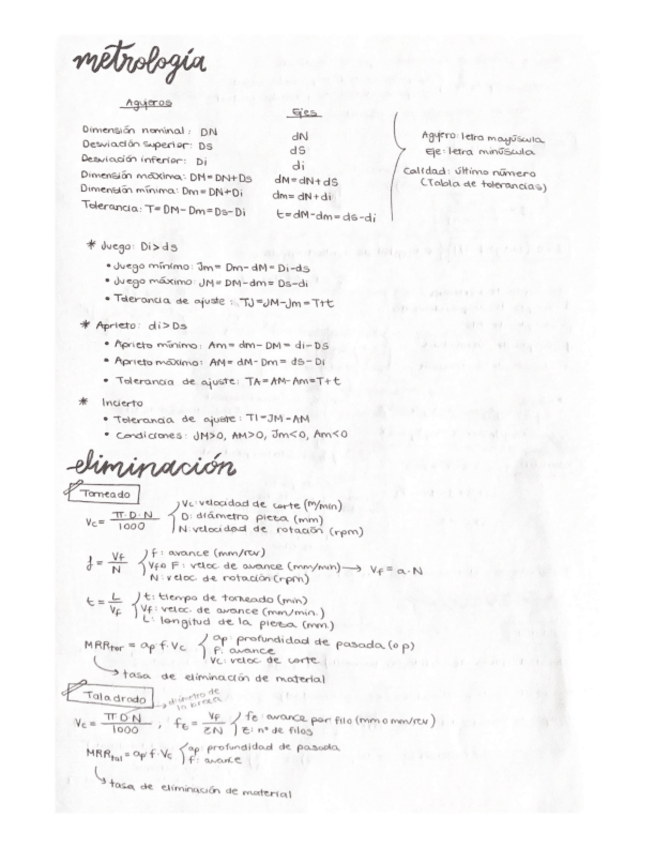 metrología
Agujeros
Ejes
Dimensión nominal: DN
dN
Desviación superior: DS
dS
Desviación inferior: Di
di
Dimensión máxima: DM=DN+DS
dM=dN+dS
Dimensión mínima: Dm=DN+Di
dm=dN+di
Tolerancia: T=DM-Dm=Ds-Di
t=dM-dm=ds-di
Agujero: letra mayúscula
Eje: letra minúscula
Calidad: último número
(Tabla de tolerancias)
* Juego: Di>ds
• Juego mínimo: Jm=Dm-dM=Di-ds
• Juego máximo: JM=DM-dm=Ds-di
• Tolerancia de ajuste: TJ=JM-Jm=T+t
* Aprieto: di>Ds
• Aprieto mínimo: Am=dm-DM=di-DS
• Aprieto máximo: AM=dM-Dm=ds-Di
• Tolerancia de ajuste: TA=AM-Am=T+t
* Incierto
• Tolerancia de ajuste: TI=JM-AM
• Condiciones: JM>0, AM>0, Jm<0, Am<0
eliminación
Torneado
Vc = π·D·N / 1000
Vc: velocidad de corte (m/min)
D: diámetro pieza (mm)
N: velocidad de rotación (rpm)
f = Vf / N
f: avance (mm/rev)
Vf o F: veloc de avance (mm/min) → Vf = a·N
N: veloc de rotación (rpm)
t = L / Vf
t: tiempo de torneado (min)
Vf: veloc. de avance (mm/min.)
L: longitud de la pieza (mm)
MRRtor = ap·f·Vc
ap: profundidad de pasada (o p)
f: avance
Vc: veloc de corte
tasa de eliminación de material
Taladrado
diámetro de
la broca
Vc = π D N / 1000 , fz = Vf / ZN
fz: avance por filo (mm o mm/rev)
z: nº de filos
MRRtal = ap·f·Vc
ap: profundidad de pasada
f: avance
tasa de eliminación de material